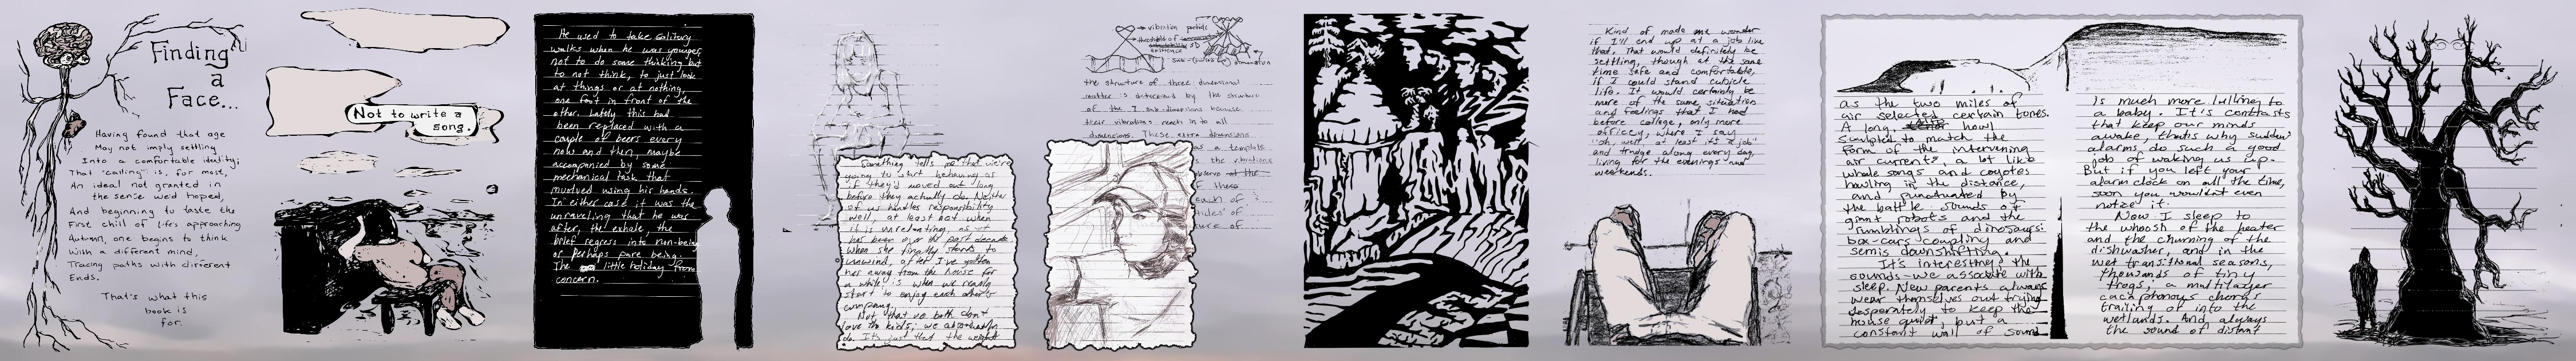 Finding
a
Face...
Having found that age
May not imply settling
Into a comfortable identity;
That "calling" is, for most,
An ideal not granted in
the sense we'd hoped,
And beginning to taste the
First chill of life's approaching
Autumn, one begins to think
With a different mind,
Tracing paths with different
Ends.
That's what this
book is
for.
Not to write a
song.
He used to take solitary
walks when he was younger
not to do some thinking but
to not think, to just look
at things or at nothing,
one foot in front of the
other. Lately this had
been replaced with a
couple of beers every
now and then, maybe
accompanied by some
mechanical task that
involved using his hands.
In either case it was the
unraveling that he was
after, the exhale, the
brief regress into non-being
or perhaps pure being.
The little holiday from
concern.
Something tells me that we're
going to start behaving as
if they'd moved out long
before they actually do. Neither
of us handles responsibility
well, at least not when
it is unrelenting, as it
has been over the past decade
when she finally starts to
unwind, after I've gotten
her away from the house for
a while is when we really
start to enjoy each other's
company.
Not that we both don't
love the kids; we absolutely
do. It's just that the weight
vibration particle
threshold of
3D
existence
dimension
the structure of three dimensional
matter is determined by the structure
of the sub-dimensions because
their vibrations reach in to all
dimensions. These extra dimensions
as a template
the vibrations
observe at the
of these
each of
of
ture of
Kind of made me wonder
if I'll end up at a job like
that. That would definitely be
settling, though at the same
time safe and comfortable,
if I could stand cubicle
life. It would certainly be
more of the same situation
and feelings that I had
before college, only more
officey, where I say
"oh, well, at least it's a job"
and trudge along every day,
living for the evenings and
weekends.
as the two miles of
air selected certain tones.
A long, howl
sculpted to match the
form of the intervening
air currents, a lot like
whale songs and coyotes
howling in the distance,
and punctuated by
the battle sounds of
giant robots and the
rumblings of dinosaurs:
box-cars coupling and
semis downshifting.
It's interesting the
sounds we associate with
sleep. New parents always
wear themselves out trying
desperately to keep the
house quiet, but a
constant wall of sound
is much more lulling to
a baby. It's contrasts
that keep our minds
awake, that's why sudden
alarms do such a good
job of waking us up.
But if you left your
alarm clock on all the time,
soon you wouldn't even
notice it.
Now I sleep to
the whoosh of the heater
and the churning of the
dishwasher, and in the
wet transitional seasons,
thousands of tiny
frogs; a multilayer
cacophonous chorus
trailing off into the
wetlands. And always
the sound of distant